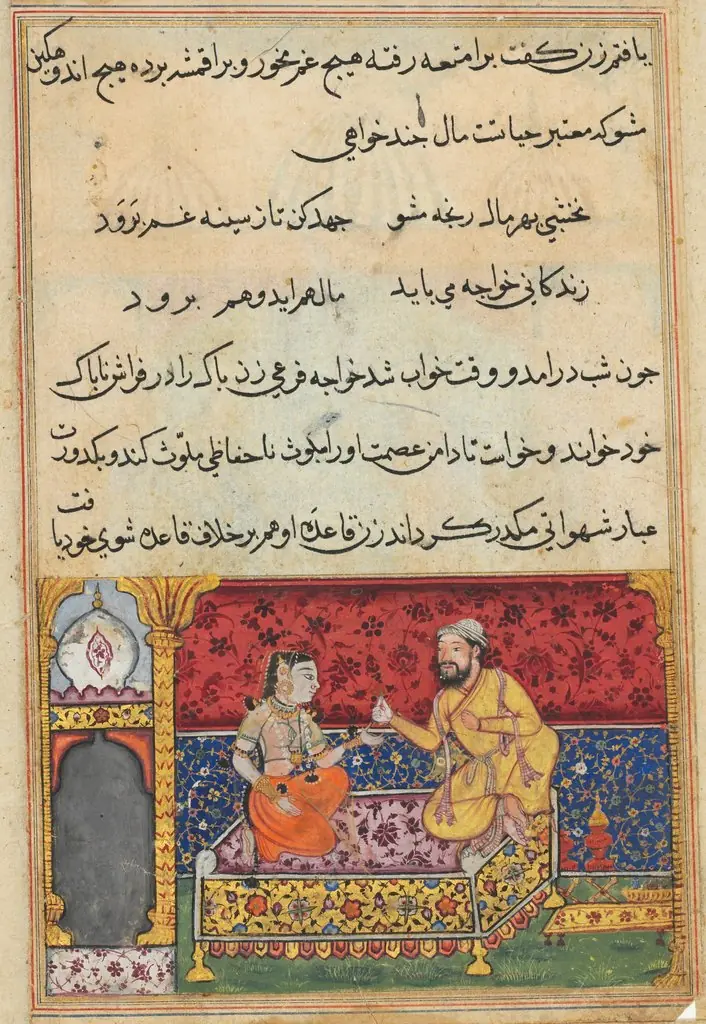 یافتم زن کفت بر امتعه رفته هیچ غم مخور و بر اقمشه برده هیچ اندوهکین
مشو که معتبر حیاتست مال چند خواهی
نخشبی بهر مال رنجه مشو جهد کن تا ز سینه غم برود
زندکانی خواجه می باید مال هم اید و هم برود
جون شب درامد و وقت خواب شد خواجه فرعی زن باک را در فراش ناباک
خود خواند و خواست تا دامن عصمت او را بلوث ناحفاظی ملوّث کند و بکدورت
غبار شهواتی مکدر کرداند زن قاعده او هم بر خلاف قاعده شوی خود یافت